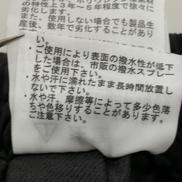 劣化が3年～5年程度で
また、使用しない場合でも製品生
産後、数年で劣化することがあり
ます。
・ご使用により表面の撥水性が低下
した場合は、市販の撥水スプレー
をご使用下さい。
・水や汗に濡れたまま長時間放置し
ないで下さい。
・水や汗、摩擦等によって多少色落
ちや色移りすることがあります。
ご注意下さい。